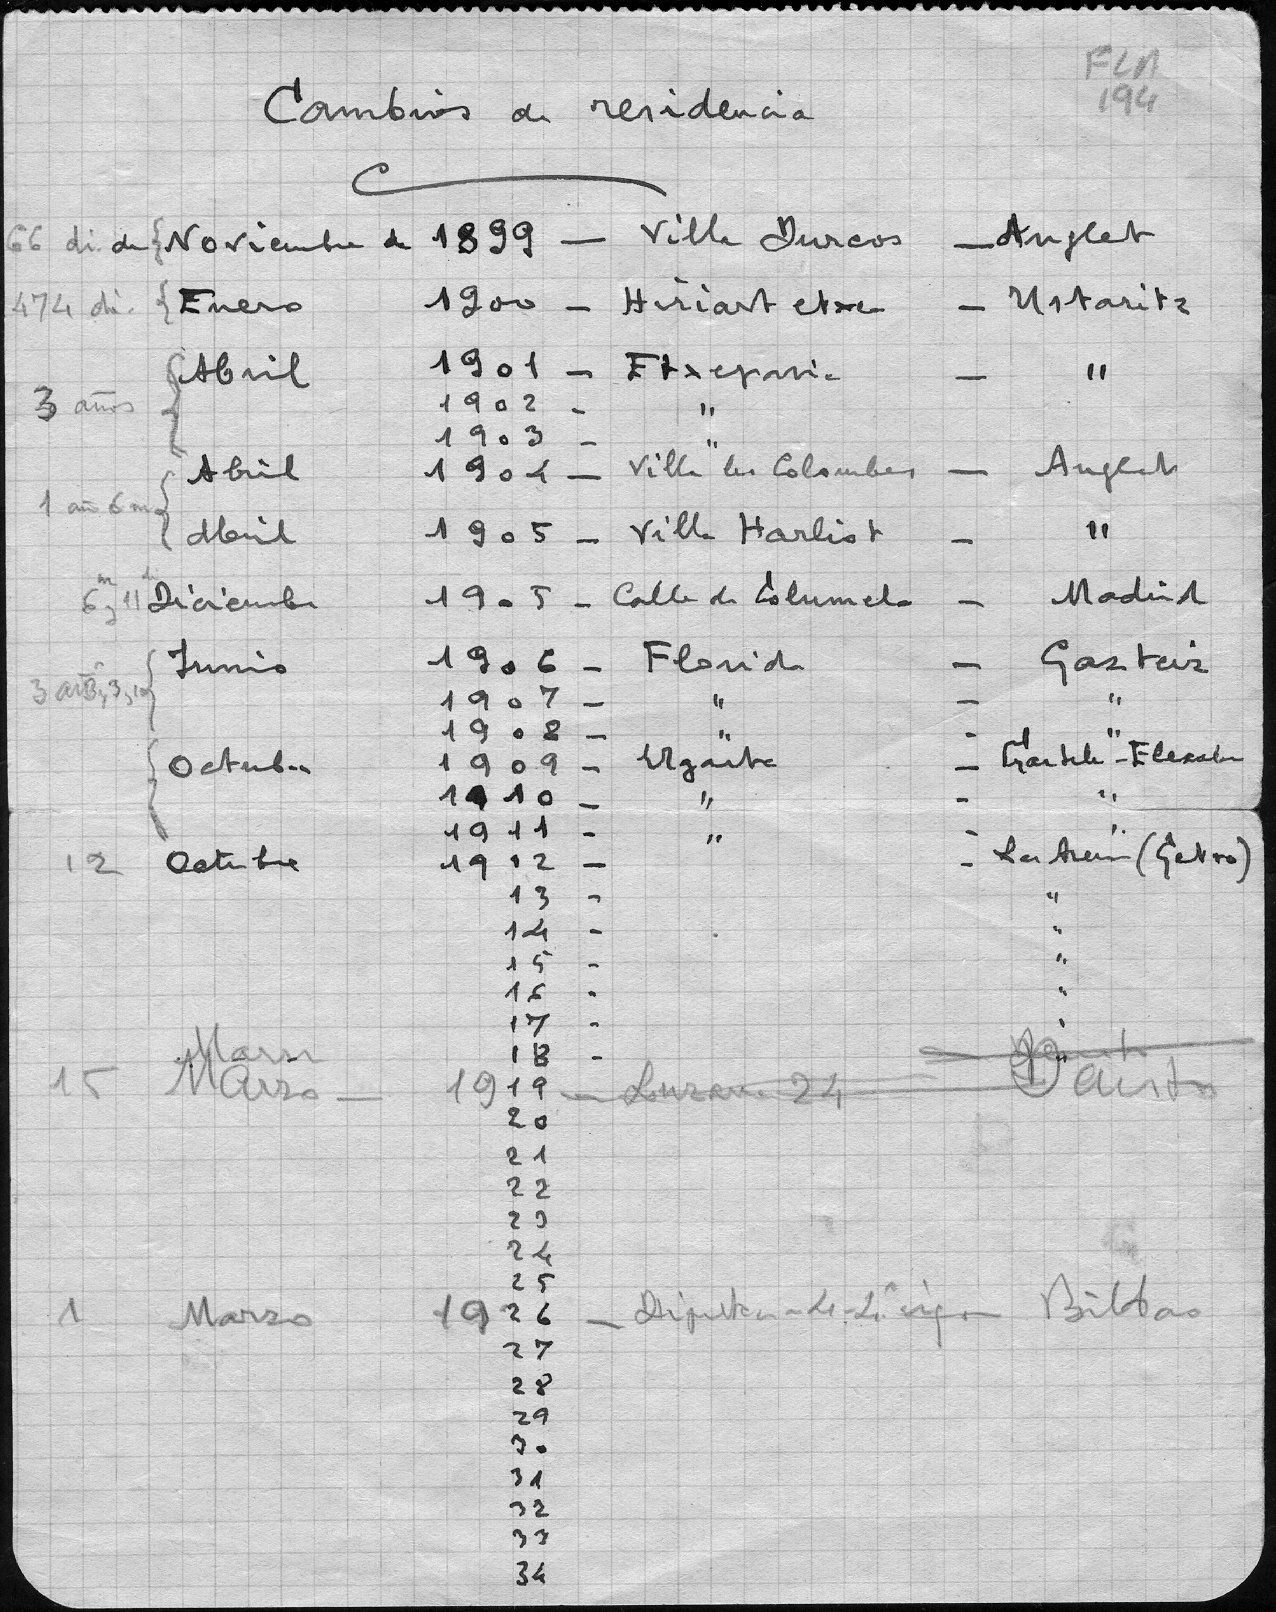 FLA
194
Cambios de residencia
66 di. de { Noviembre de 1899 — Villa Durcos — Anglet
474 di. { Enero 1900 — Hiriart etxea — Ustaritz
{ Abril 1901 — Etxegarai — "
3 años 1902 - "
1903 - "
Abril 1904 — Villa les Colombes — Anglet
1 año 6 m {
Abril 1905 — Villa Harlist — "
6 m y 11 di Diciembre 1905 - Calle de Columela — Madrid
{ Junio 1906 - Florida — Gazteiz
3 años, 3, 1907 - " - "
1908 - " - "
{ Octubre 1909 - Ugarte — -Elexabe
1910 - " - "
1911 - " - "
12 Octubre 1912 - - Las Arenas (Getxo)
13 - "
14 - "
15 - "
16 - "
17 - "
Marzo 18 - "
15 Marzo — 1919 — 24 Deusto
20
21
22
23
24
25
1 Marzo 1926 — Bilbao
27
28
29
30
31
32
33
34